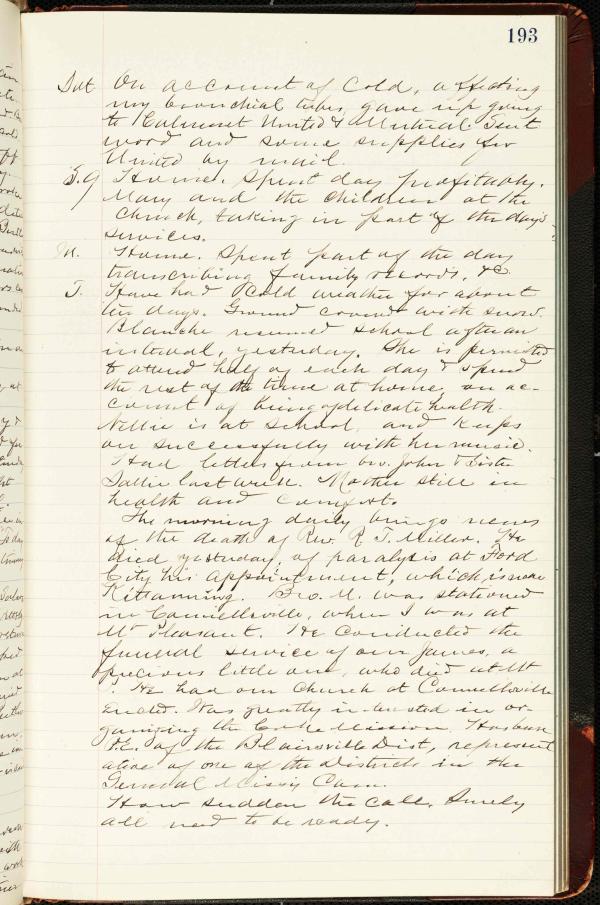 193
Sat On account of Cold, affecting
my bronchial tubes, gave up going
to Calumet United & Mutual. Sent
word and some supplies for
United by mail.
S. 9 Home. Spent day profitably.
Mary and the children at the
Church, taking in part of the day's
services.
M. Home. Spent part of the day
transcribing family records, &c.
T. Have had Cold weather for about
ten days. Ground covered with snow.
Blanche resumed school after an
interval, yesterday. She is permitted
to attend half of each day & spend
the rest of the time at home, on ac-
count of being of delicate health.
Nellie is at school, and keeps
on successfully with her music.
Had letters from bro. John & Sister
Sallie last week. Mother still in
health and comfort.
The morning daily brings news
of the death of Rev. R. T. Miller. He
died yesterday, of paralysis at Ford
City his appointment, which is near
Kittanning. Bro. M. was stationed
in Connellsville, when I was at
Mt Pleasant. He conducted the
funeral service of our James, a
precious little one, who died at Mt
P. He had our church at Connellsville
ended. Was greatly interested in or-
ganizing the Coke Mission. Has been
P.E. of the Blairsville Dist, represent
ative of one of the Districts in the
General Missy Com.
How sudden the call. Surely
all need to be ready.